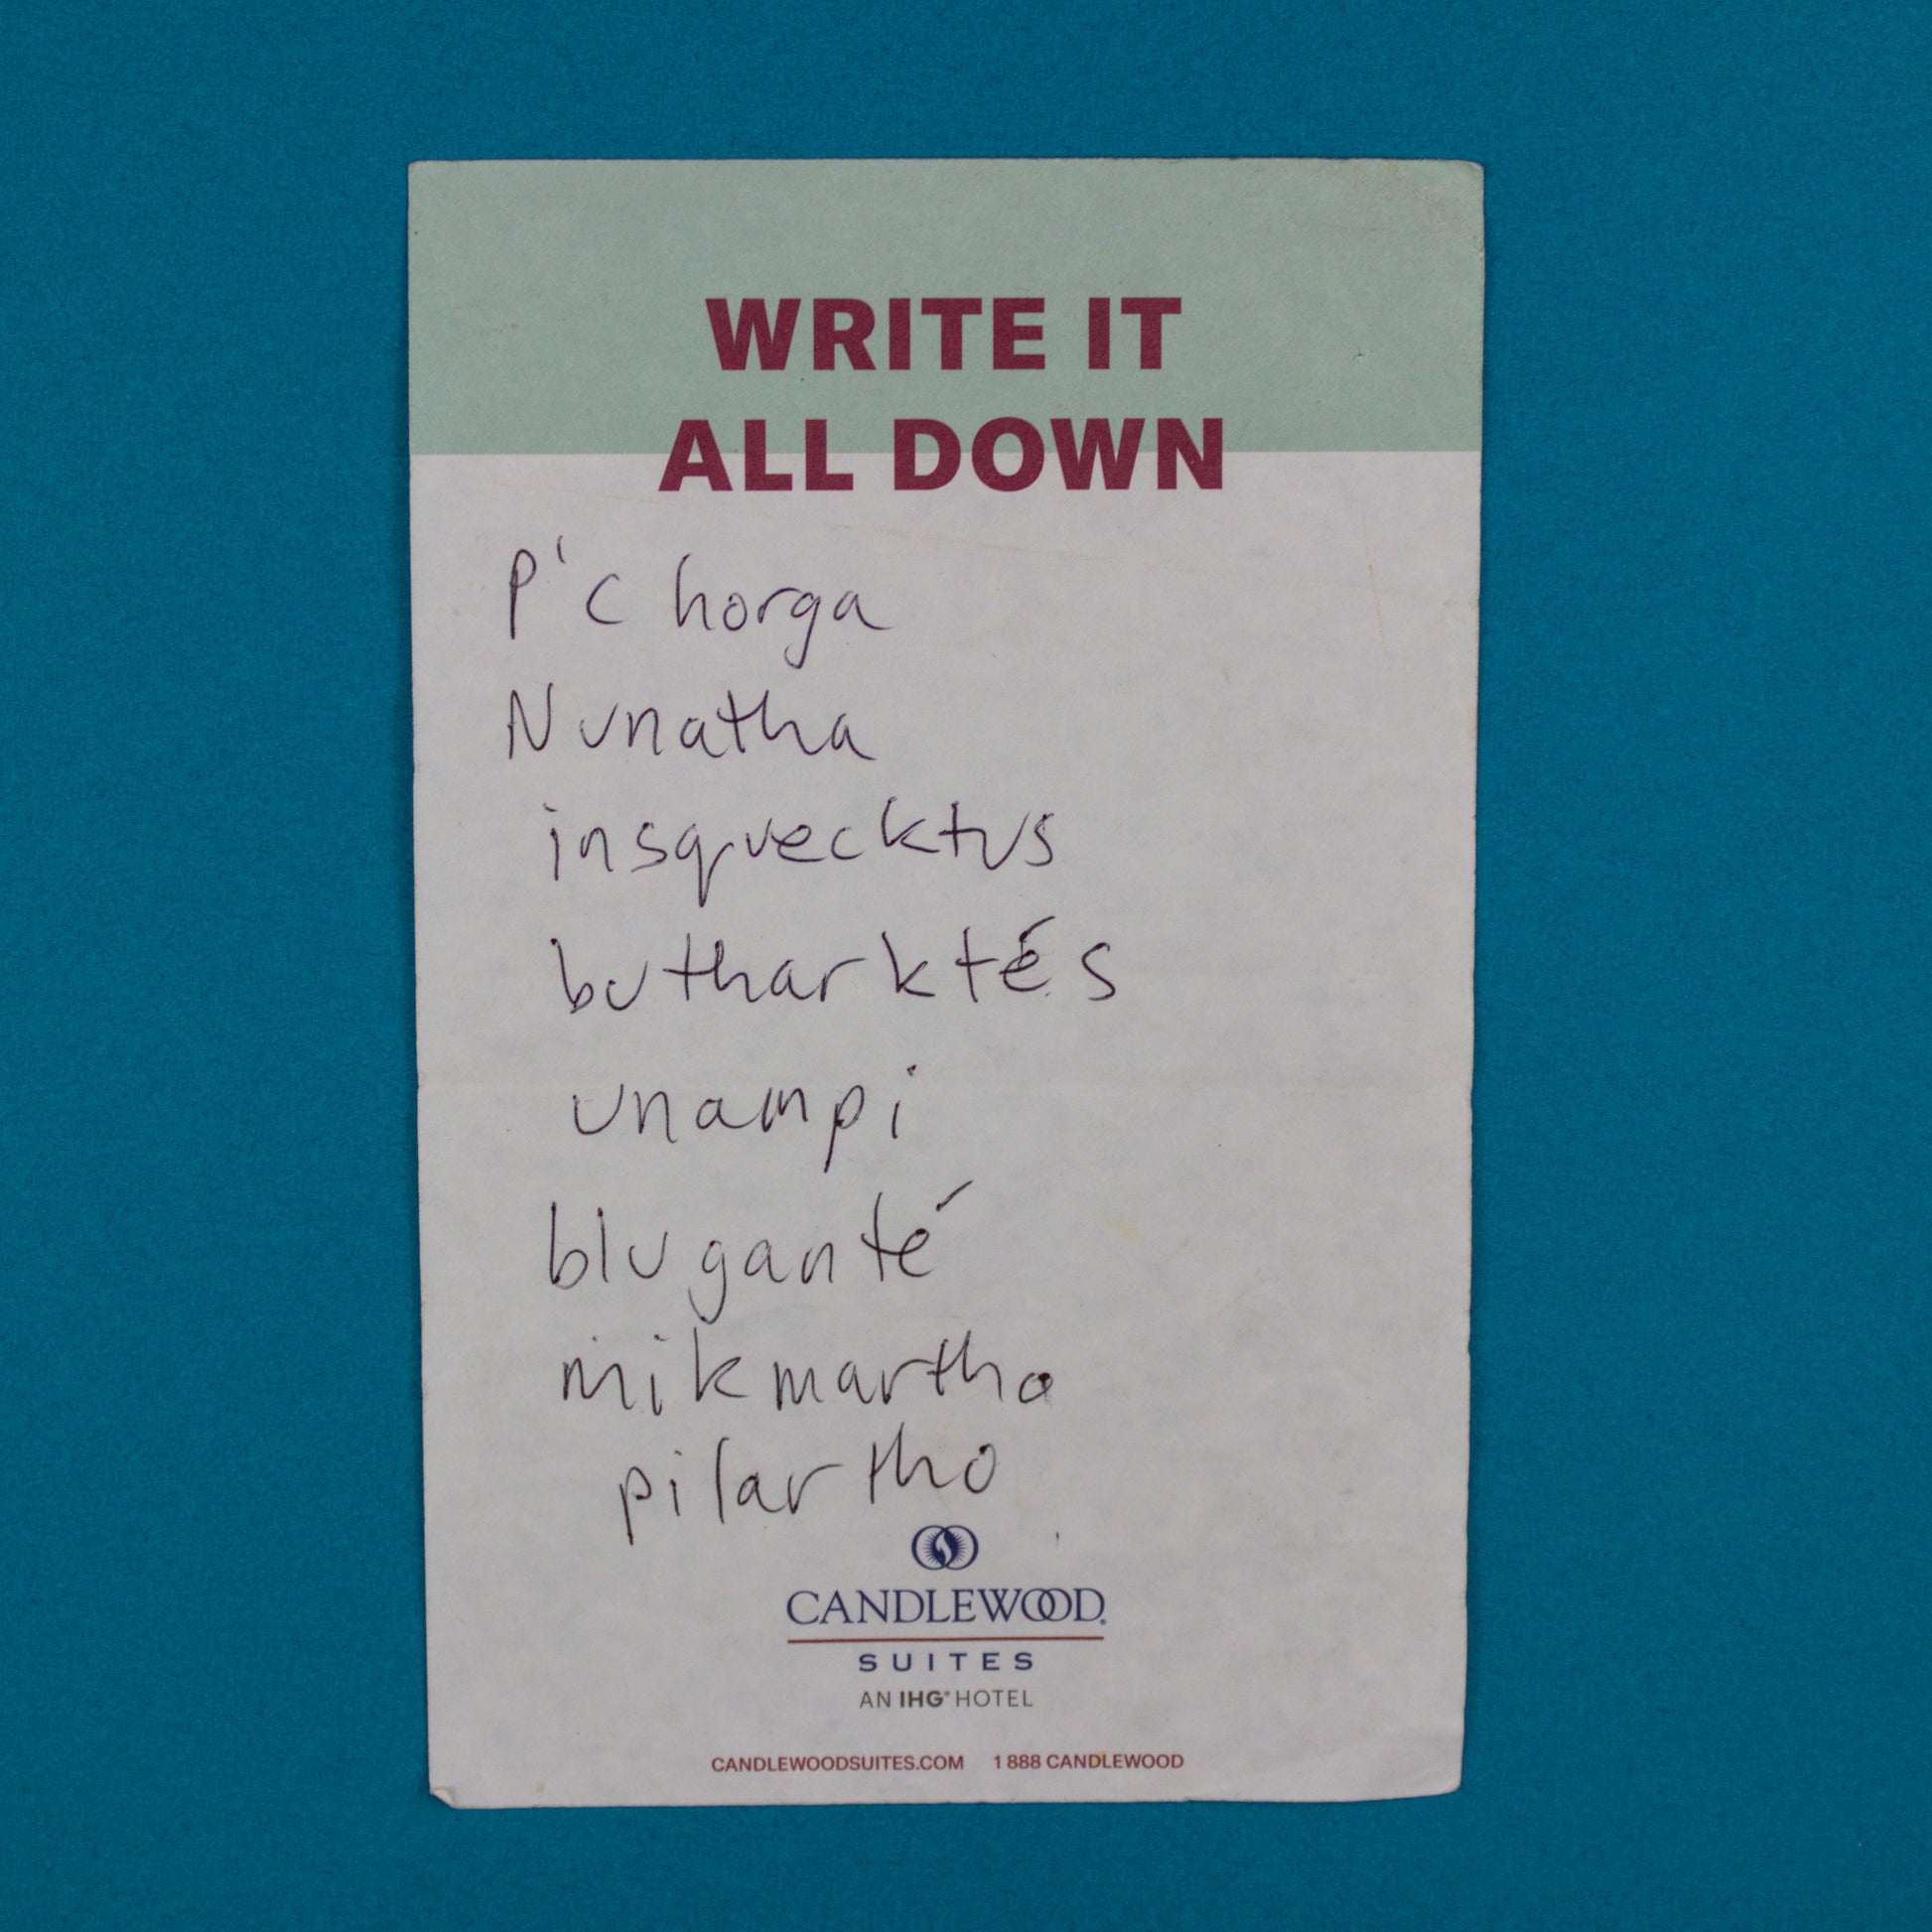 WRITE IT
ALL DOWN
P'c horga
Nunatha
insquecktus
butharktés
unampi
bluganté
mikmartho
pilartho
CANDLEWOOD
SUITES
AN IHG® HOTEL
CANDLEWOODSUITES.COM 1 888 CANDLEWOOD